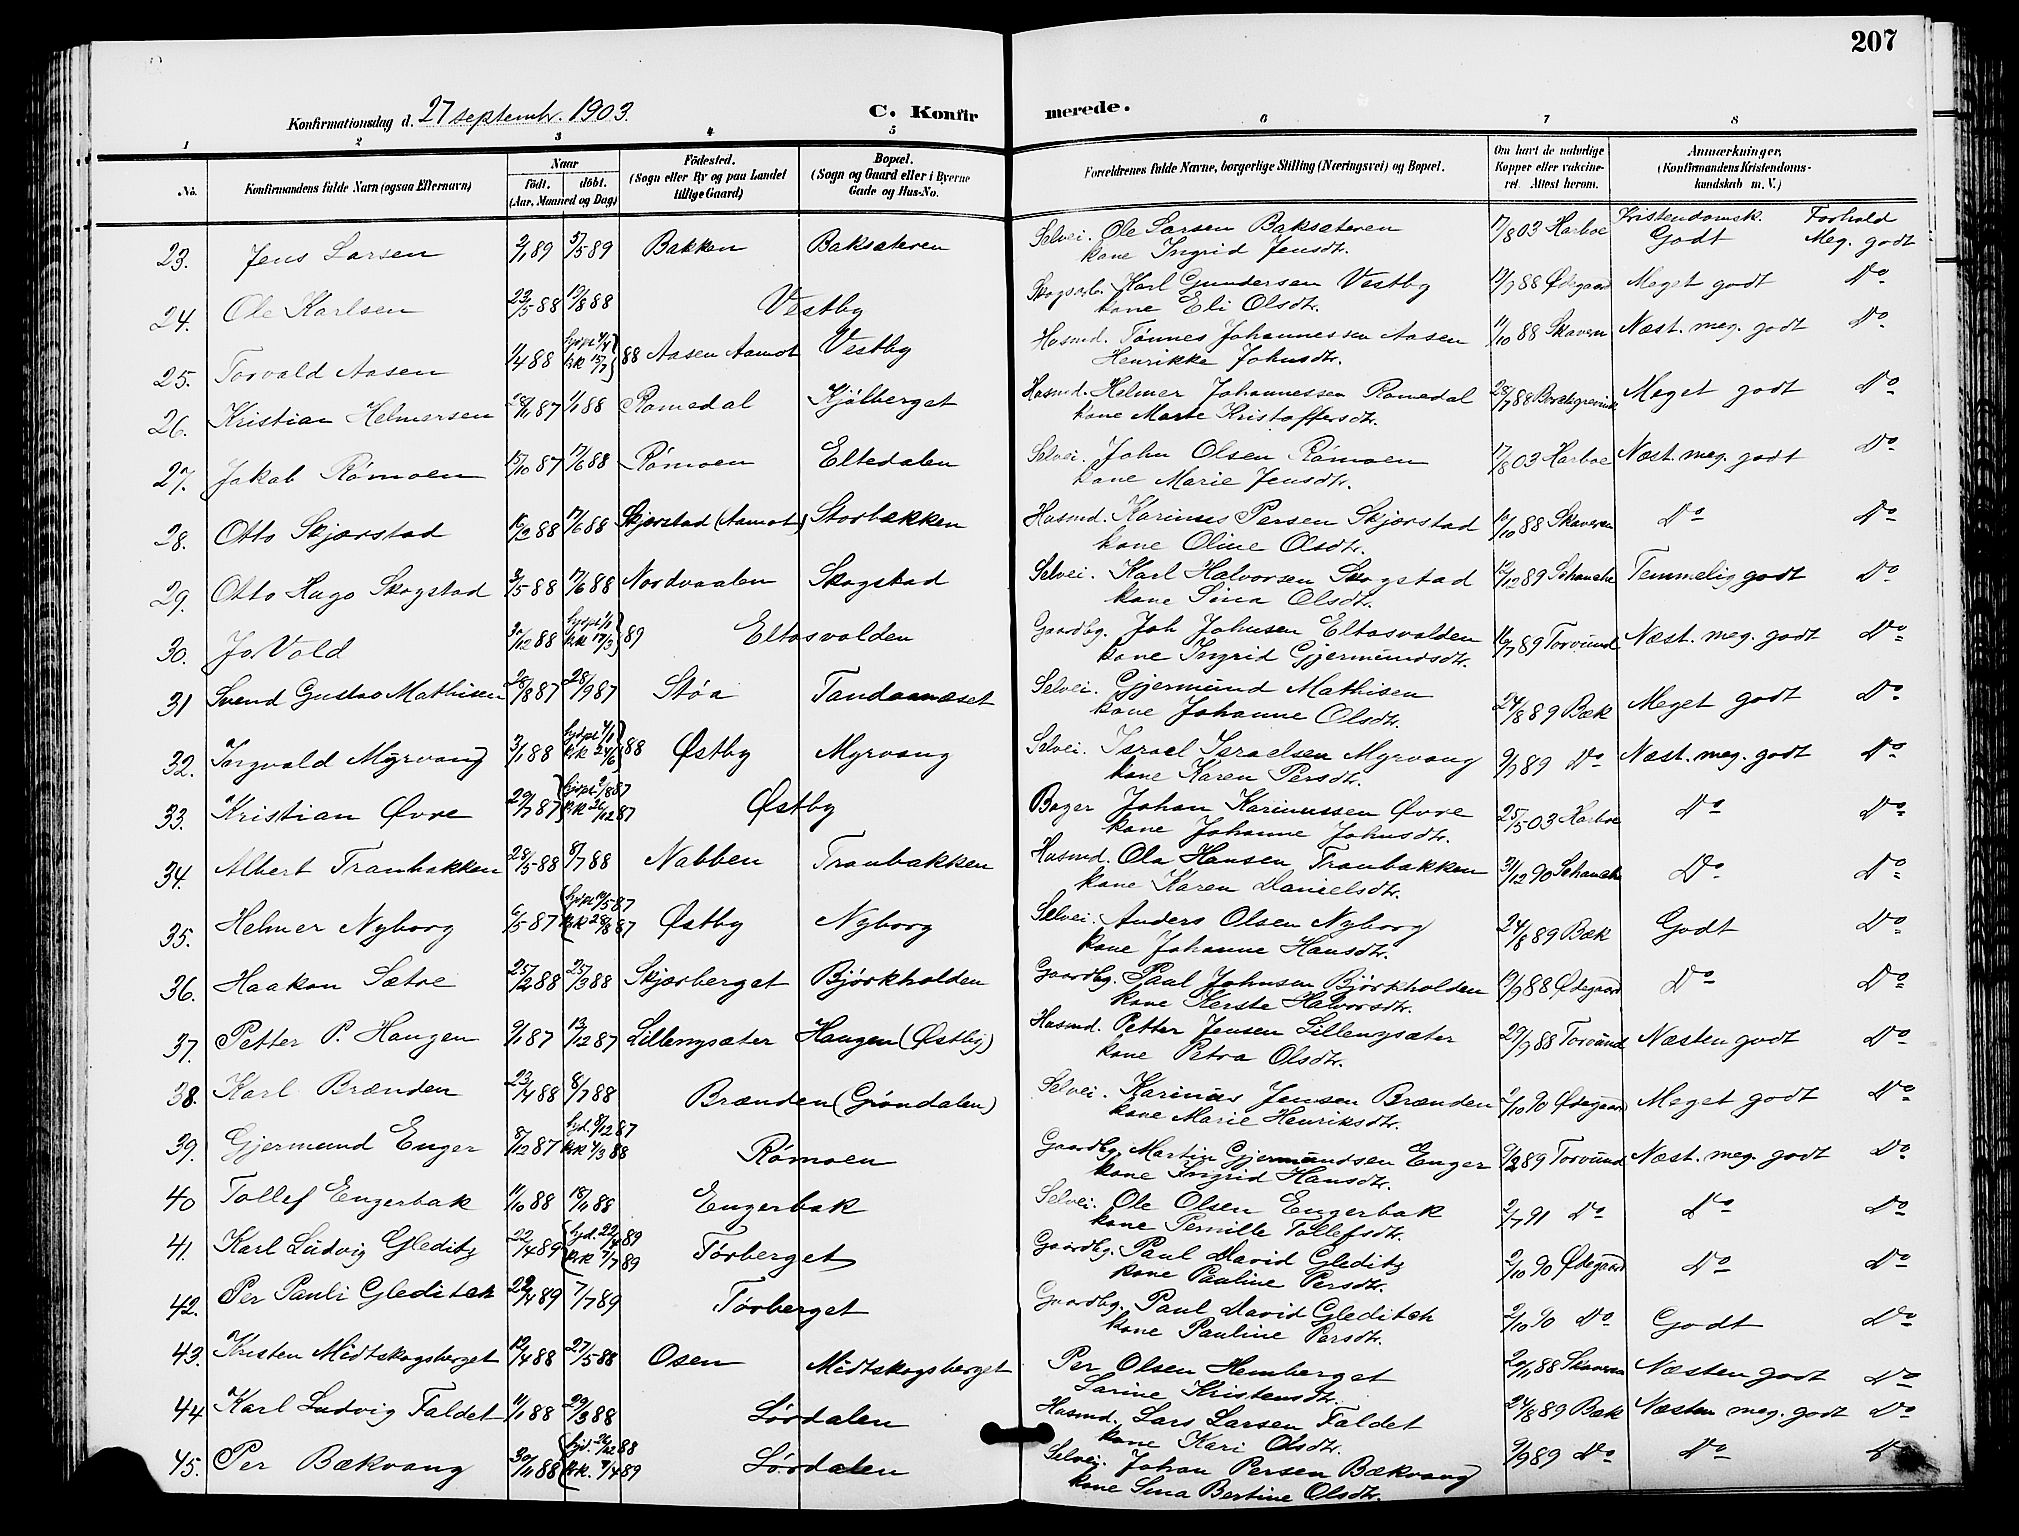 207
Konfirmationsdag d. 27 septembr. 1903.
C. Konfirmerede.
1 2 3 4 5 6 7 8
No.
Konfirmandens fulde Navn (ogsaa Efternavn)
Naar
födt. döbt.
(Aar, Maaned og Dag)
Födested.
(Sogn eller By og paa Landet
tillige Gaard)
Bopæl.
(Sogn og Gaard eller i Byerne
Gade og Hus-No.
Forældrenes fulde Navne, borgerlige Stilling (Næringsvei) og Bopæl.
Om havt de naturlige
Kopper eller vakcine-
ret. Attest herom.
Anmærkninger,
(Konfirmandens Kristendoms-
kundskab m. V.)
Kristendomsk. Forhold
23. Jens Larsen 2/1 89 5/5 89 Bakken Baksæteren Selvei. Ole Larsen Baksæteren 17/8 03 Harboe Godt Meg. godt
kone Ingrid Jensdtr.
24. Ole Karlsen 23/5 88 19/8 88 Vestby Skogsarb. Karl Gundersen Vestby 19/9 88 Ødegaard Meget godt Do
kone Eli Olsdtr.
25. Torvald Aasen 1/4 88 88 Aasen Aamot Vestby Husmd. Tønnes Johannessen Aasen 11/10 88 Skaveren Næst. meg. godt Do
Henrikke Johnsdtr.
26. Kristian Helmersen 28/11 87 1/1 88 Romedal Kjølberget Husmd. Helmer Johannessen Romedal 28/7 88 Meget godt Do
kone Marte Kristoffersdtr.
27. Jakob Rømoen 15/10 87 17/6 88 Rømoen Eltedalen Selvei. John Olsen Rømoen 17/8 03 Harboe Næst. meg. godt Do
kone Marie Jensdtr.
28. Otto Skjærstad 16/2 88 17/6 88 Skjærstad (Aamot) Storbækken Husmd. Karinus Persen Skjærstad 10/10 88 Skaveren Do Do
kone Oline Olsdtr.
29. Otto Hugo Skogstad 3/5 88 17/6 88 Nordvaalen Skogstad Selvei. Karl Halvorsen Skogstad 12/12 89 Schanche Temmelig godt Do
kone Sina Olsdtr.
30. Jo Vold 30/12 88 hjdpt 1/1 kk 17/3 89 Eltasvolden Gaardbg. Joh Johnsen Eltasvolden 16/7 89 Torvund Næst. meg. godt Do
kone Ingrid Gjermundsdtr.
31 Svend Gustav Mathisen 28/8 87 28/9 87 Støa Tandaaneset Selvei. Gjermund Mathisen 24/8 89 Bæk Meget godt Do
kone Johanne Olsdtr.
32. Torgvald Myrvang 3/1 88 hjdpt 4/1 kk 24/6 88 Østby Myrvang Selvei. Israel Israelsen Myrvang 9/9 89 Do Næst. meg. godt Do
kone Karen Persdtr.
33. Kristian Øvre 29/7 87 hjdpt 2/8 87 kk 26/12 87 Østby Bager Johan Karinussen Øvre 25/5 03 Harboe Do Do
kone Johanne Johnsdtr.
34. Albert Tranbakken 28/5 88 8/7 88 Nabben Tranbakken Husmd. Ola Hansen Tranbakken 31/12 90 Schanche Do Do
kone Karen Danielsdtr.
35. Helmer Nyborg 6/5 87 kk 28/8 87 Østby Nyborg Selvei. Anders Olsen Nyborg 24/8 89 Bæk Godt Do
kone Johanne Hansdtr.
36. Haakon Sætre 25/2 88 25/3 88 Skjærberget Bjørkholden Gaardbg. Paul Johnsen Bjørkholden 19/9 88 Ødegaard Do Do
kone Kerste Halvorsdtr.
37. Petter P. Haugen 9/1 87 13/12 87 Lillengsæter Haugen (Østby) Husmd. Petter Jensen Lillengsæter 29/9 88 Torvund Næsten godt Do
kone Petra Olsdtr.
38. Karl Brænden 23/4 88 8/7 88 Brænden (Grøndalen) Selvei. Karinus Jensen Brænden 2/10 90 Ødegaard Meget godt Do
kone Marie Henriksdtr.
39. Gjermund Enger 8/12 87 hjd. 9/12 87 kk 4/3 88 Rømoen Gaardbg. Martin Gjermundsen Enger 9/2 89 Torvund Næst. meg. godt Do
kone Ingrid Hansdtr.
40 Tollef Engerbak 11/10 88 18/11 88 Engerbak Selvei. Ole Olsen Engerbak 2/7 91 Do Do Do
kone Pernille Tollefsdtr.
41. Karl Ludvig Gleditz 22/4 89 hjd. 22/4 89 kk 7/7 89 Tørberget Gaardbg. Paul David Gleditz 2/10 90 Ødegaard Do Do
kone Pauline Persdtr.
42. Per Pauli Gleditsch 22/4 89 7/7 89 Tørberget Gaardbg. Paul David Gleditsch 2/10 90 Do Godt Do
kone Pauline Persdtr.
43. Kristen Midtskogsberget 12/4 88 27/5 88 Osen Midtskogsberget Per Olsen Hemberget 20/11 88 Skaveren Næsten godt Do
Sarine Kristensdtr.
44 Karl Ludvig Faldet 11/1 88 29/3 88 Lørdalen Husmd. Lars Larsen Faldet 24/8 89 Bæk Næsten meg. godt Do
kone Kari Olsdtr.
45. Per Bækvang 30/11 88 hjd. 26/12 88 kk. 7/4 89 Lørdalen Selvei. Johan Persen Bækvang 9/9 89 Do Do
kone Sina Bertine Olsdtr.